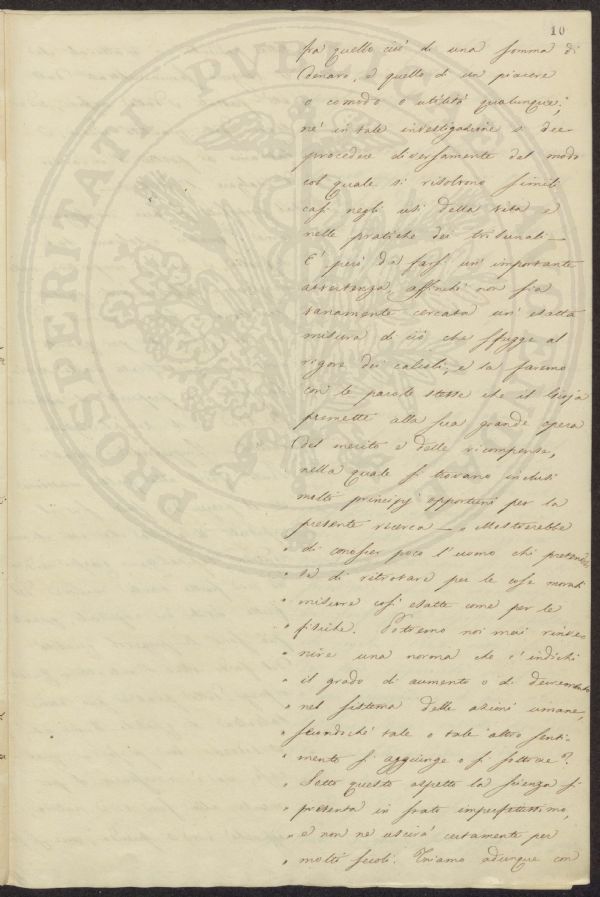 10
fra quello cioè di una somma di
denaro, e quello di un piacere
o comodo o utilità qualunque;
nè in tale investigazione si dee
procedere diversamente dal modo
col quale si risolvono simili
casi negli usi della vita e
nelle pratiche dei tribunali —
E' però da farsi un' importante
avvertenza, affinchè non sia
vanamente cercata un' esatta
misura di ciò che sfugge al
rigore dei calcoli, e la faremo
con le parole stesse che il Gioja
premette alla sua grande opera
del merito e delle ricompense,
nella quale si trovano inclusi
molti principj opportuni per la
presente ricerca — » Mostrerebbe
» di conoscer poco l'uomo chi pretendes
» se di ritrovare per le cose morali
» misure così esatte come per le
» fisiche. Potremo noi mai rinve-
» nire una norma che c'indichi
» il grado di aumento o di decremento
» nel sistema delle azioni umane,
» secondochè tale o tale altro senti-
» mento si aggiunge o si sottrae?
» Sotto questo aspetto la scienza si
» presenta in stato imperfettissimo,
» e non ne uscirà certamente per
» molti secoli. Triamo adunque con
PROSPERITATI PVBLICAE